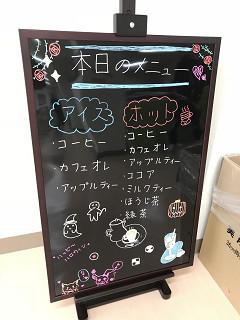 本日のメニュー
アイス
・コーヒー
・カフェオレ
・アップルティー
ホット
・コーヒー
・カフェオレ
・アップルティー
・ココア
・ミルクティー
・ほうじ茶
・緑茶
ハッピー
ハロウィン